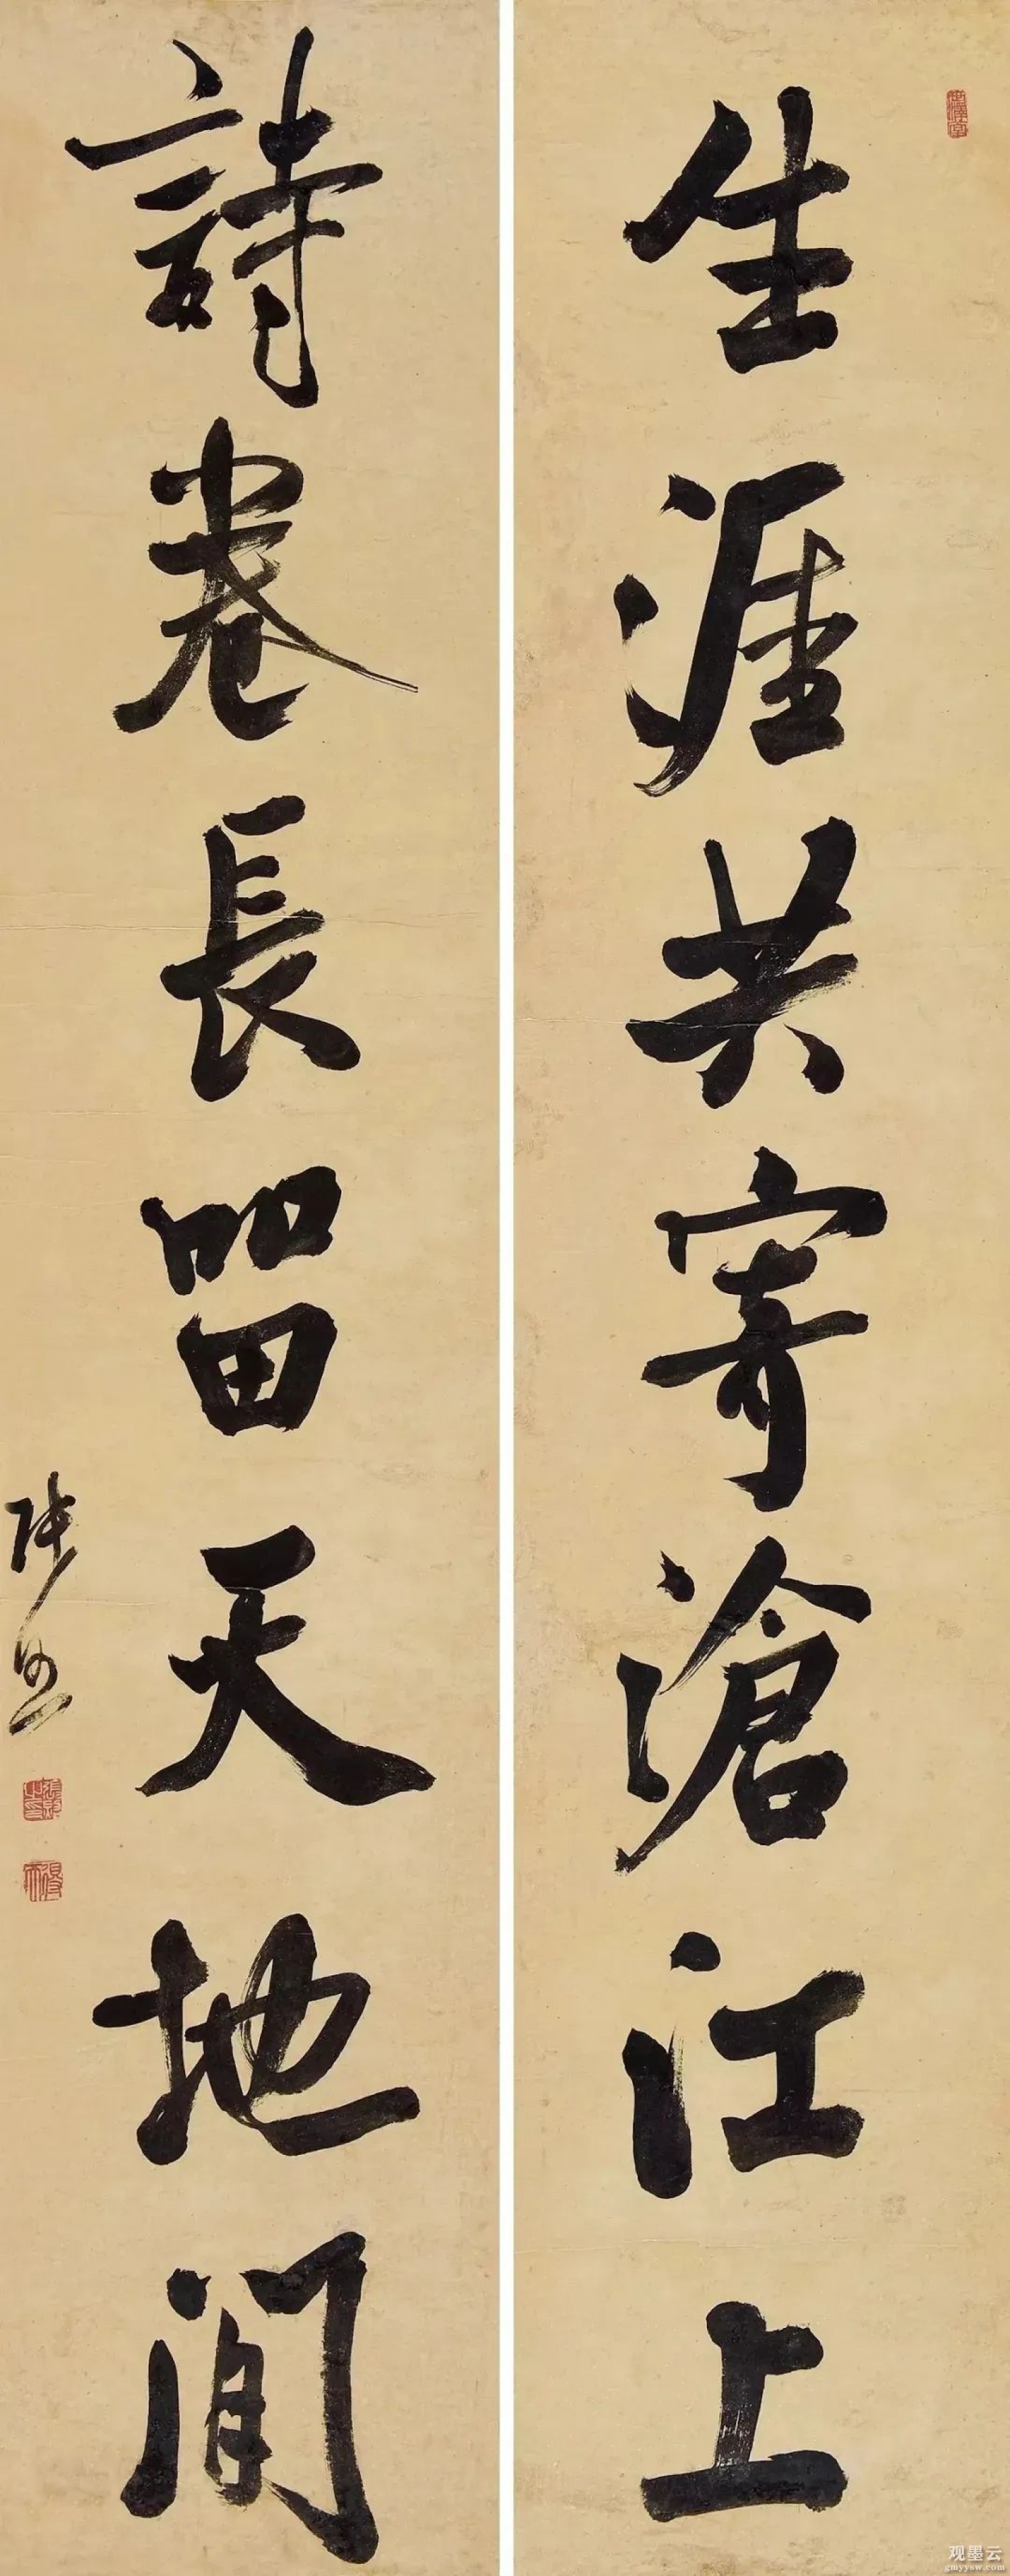 生涯共寄滄江上
詩卷長留天地間
張照
观墨云
gmyysw.com